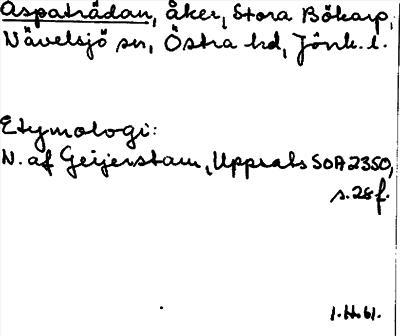 Aspaträdan, åker, Stora Bökarp,
Nävelsjö sn, Östra hd, Jönk. l.
Etymologi:
N. af Geijerstam, Uppsats SOA 2350,
s. 28 f.
1.61.